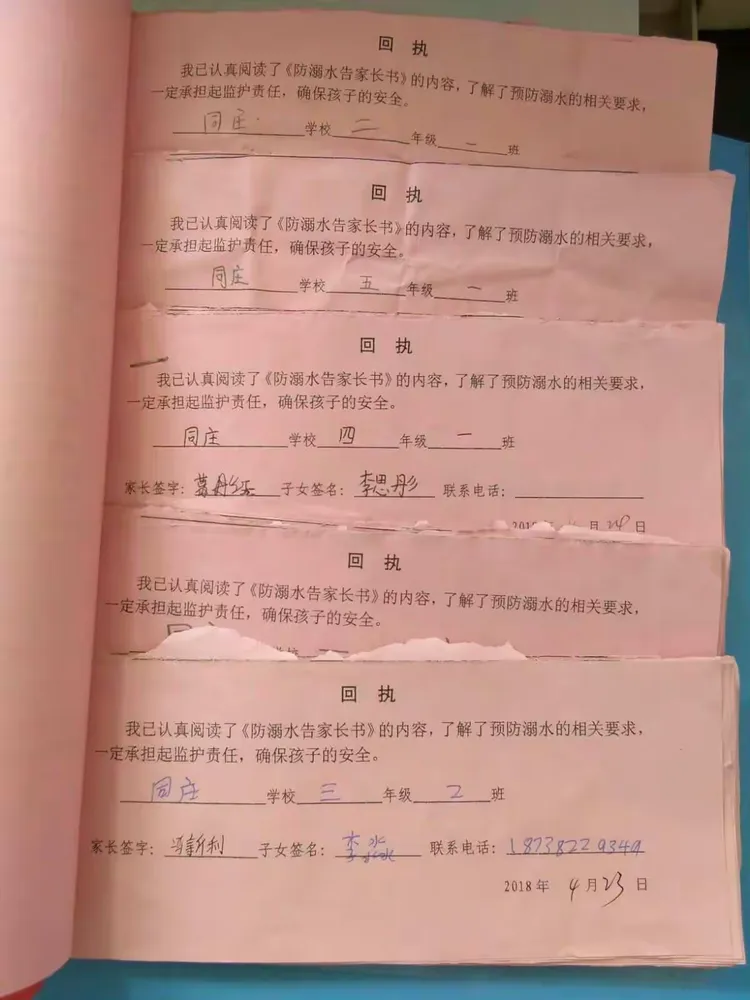 回 执
我已认真阅读了《防溺水告家长书》的内容，了解了预防溺水的相关要求，
一定承担起监护责任，确保孩子的安全。
同庄 学校 二 年级 一 班
回 执
我已认真阅读了《防溺水告家长书》的内容，了解了预防溺水的相关要求，
一定承担起监护责任，确保孩子的安全。
同庄 学校 五 年级 一 班
回 执
我已认真阅读了《防溺水告家长书》的内容，了解了预防溺水的相关要求，
一定承担起监护责任，确保孩子的安全。
同庄 学校 四 年级 一 班
家长签字： 子女签名：李思彤 联系电话：
月 24 日
回 执
我已认真阅读了《防溺水告家长书》的内容，了解了预防溺水的相关要求，
一定承担起监护责任，确保孩子的安全。
回 执
我已认真阅读了《防溺水告家长书》的内容，了解了预防溺水的相关要求，
一定承担起监护责任，确保孩子的安全。
同庄 学校 三 年级 2 班
家长签字：冯新利 子女签名：李淼 联系电话：18738229349
2018 年 4 月 23 日